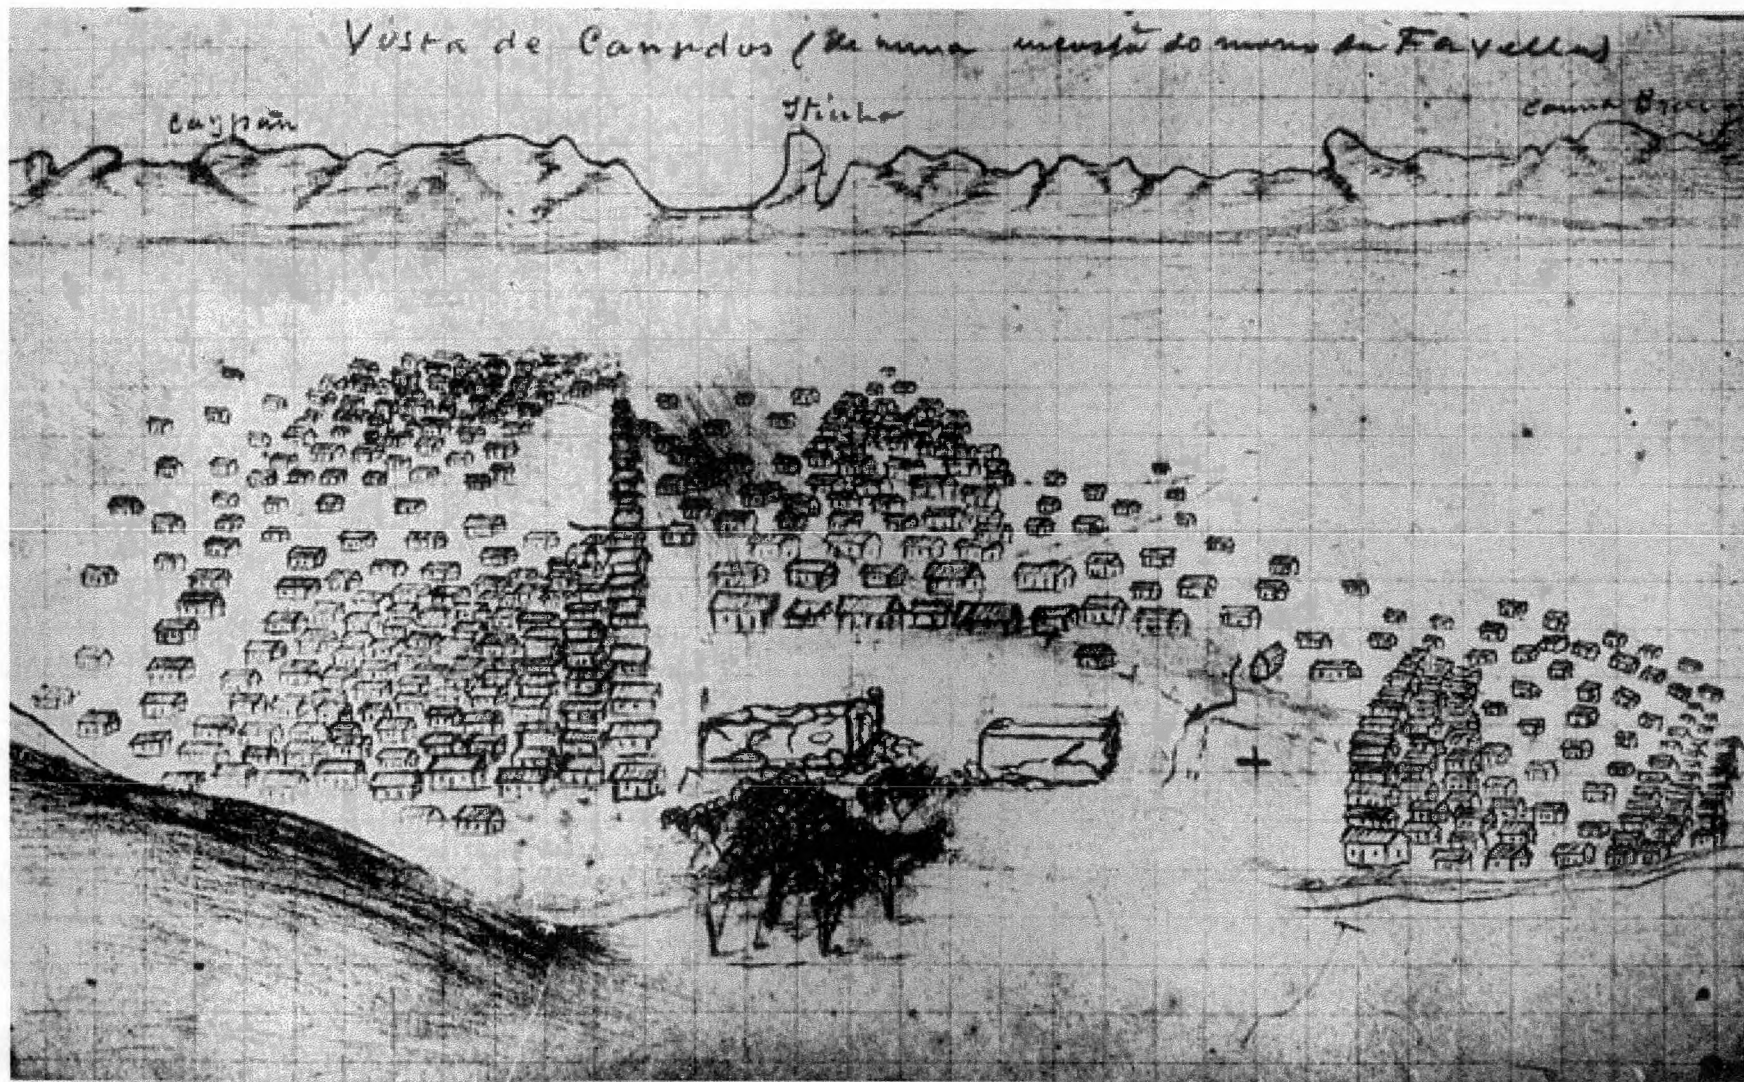 Vista de Canudos (de uma encosta do morro da Favella)
Caypan
Canna Brava